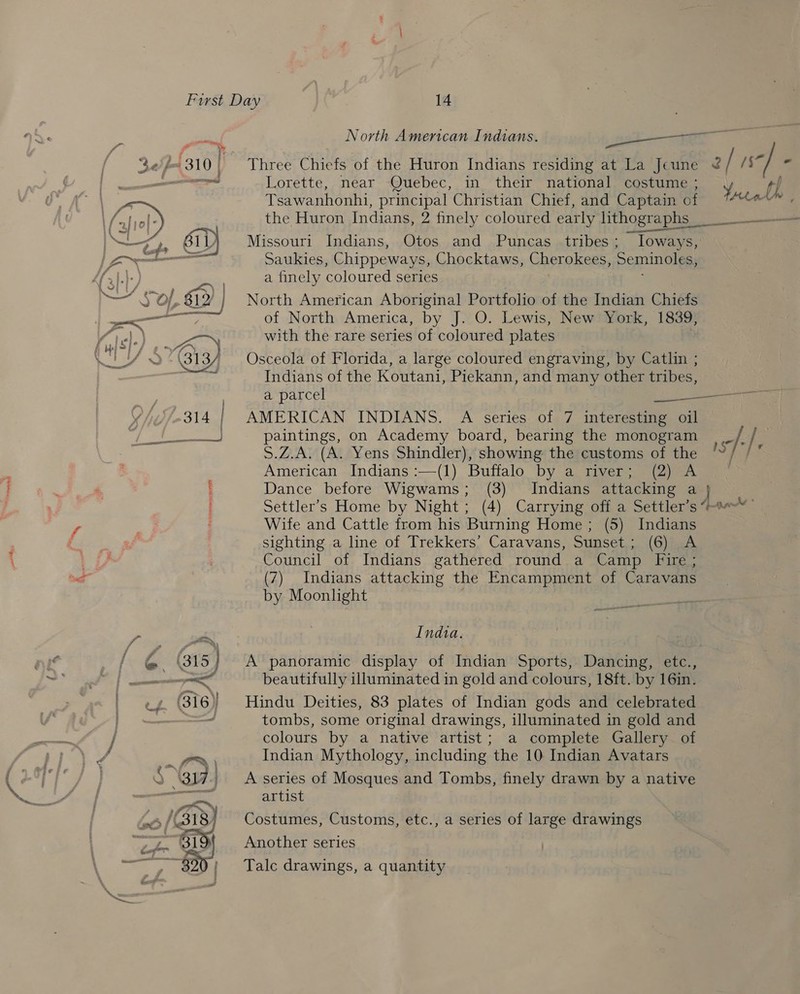 First Day 14
North American Indians.
310 Three Chiefs of the Huron Indians residing at La Jeune
Lorette, near Quebec, in their national costume ;
Tsawanhonhi, principal Christian Chief, and Captain of
the Huron Indians, 2 finely coloured early lithographs
311 Missouri Indians, Otos and Puncas tribes ; Ioways,
Saukies, Chippeways, Chocktaws, Cherokees, Seminoles,
a finely coloured series
312 North American Aboriginal Portfolio of the Indian Chiefs
of North America, by J. O. Lewis, New York, 1839,
with the rare series of coloured plates
313 Osceola of Florida, a large coloured engraving, by Catlin ;
Indians of the Koutani, Piekann, and many other tribes,
a parcel
314 AMERICAN INDIANS. A series of 7 interesting oil
paintings, on Academy board, bearing the monogram
S.Z.A. (A. Yens Shindler), showing the customs of the
American Indians :—(1) Buffalo by a river ; (2) A
Dance before Wigwams ; (3) Indians attacking a
Settler's Home by Night ; (4) Carrying off a Settler's
Wife and Cattle from his Burning Home ; (5) Indians
sighting a line of Trekkers' Caravans, Sunset ; (6) A
Council of Indians gathered round a Camp Fire ;
(7) Indians attacking the Encampment of Caravans
by Moonlight
India.
315 A panoramic display of Indian Sports, Dancing, etc.,
beautifully illuminated in gold and colours, 18ft. by 16in.
316 Hindu Deities, 83 plates of Indian gods and celebrated
tombs, some original drawings, illuminated in gold and
colours by a native artist ; a complete Gallery of
Indian Mythology, including the 10 Indian Avatars
317 A series of Mosques and Tombs, finely drawn by a native
artist
318 Costumes, Customs, etc., a series of large drawings
319 Another series
320 Talc drawings, a quantity